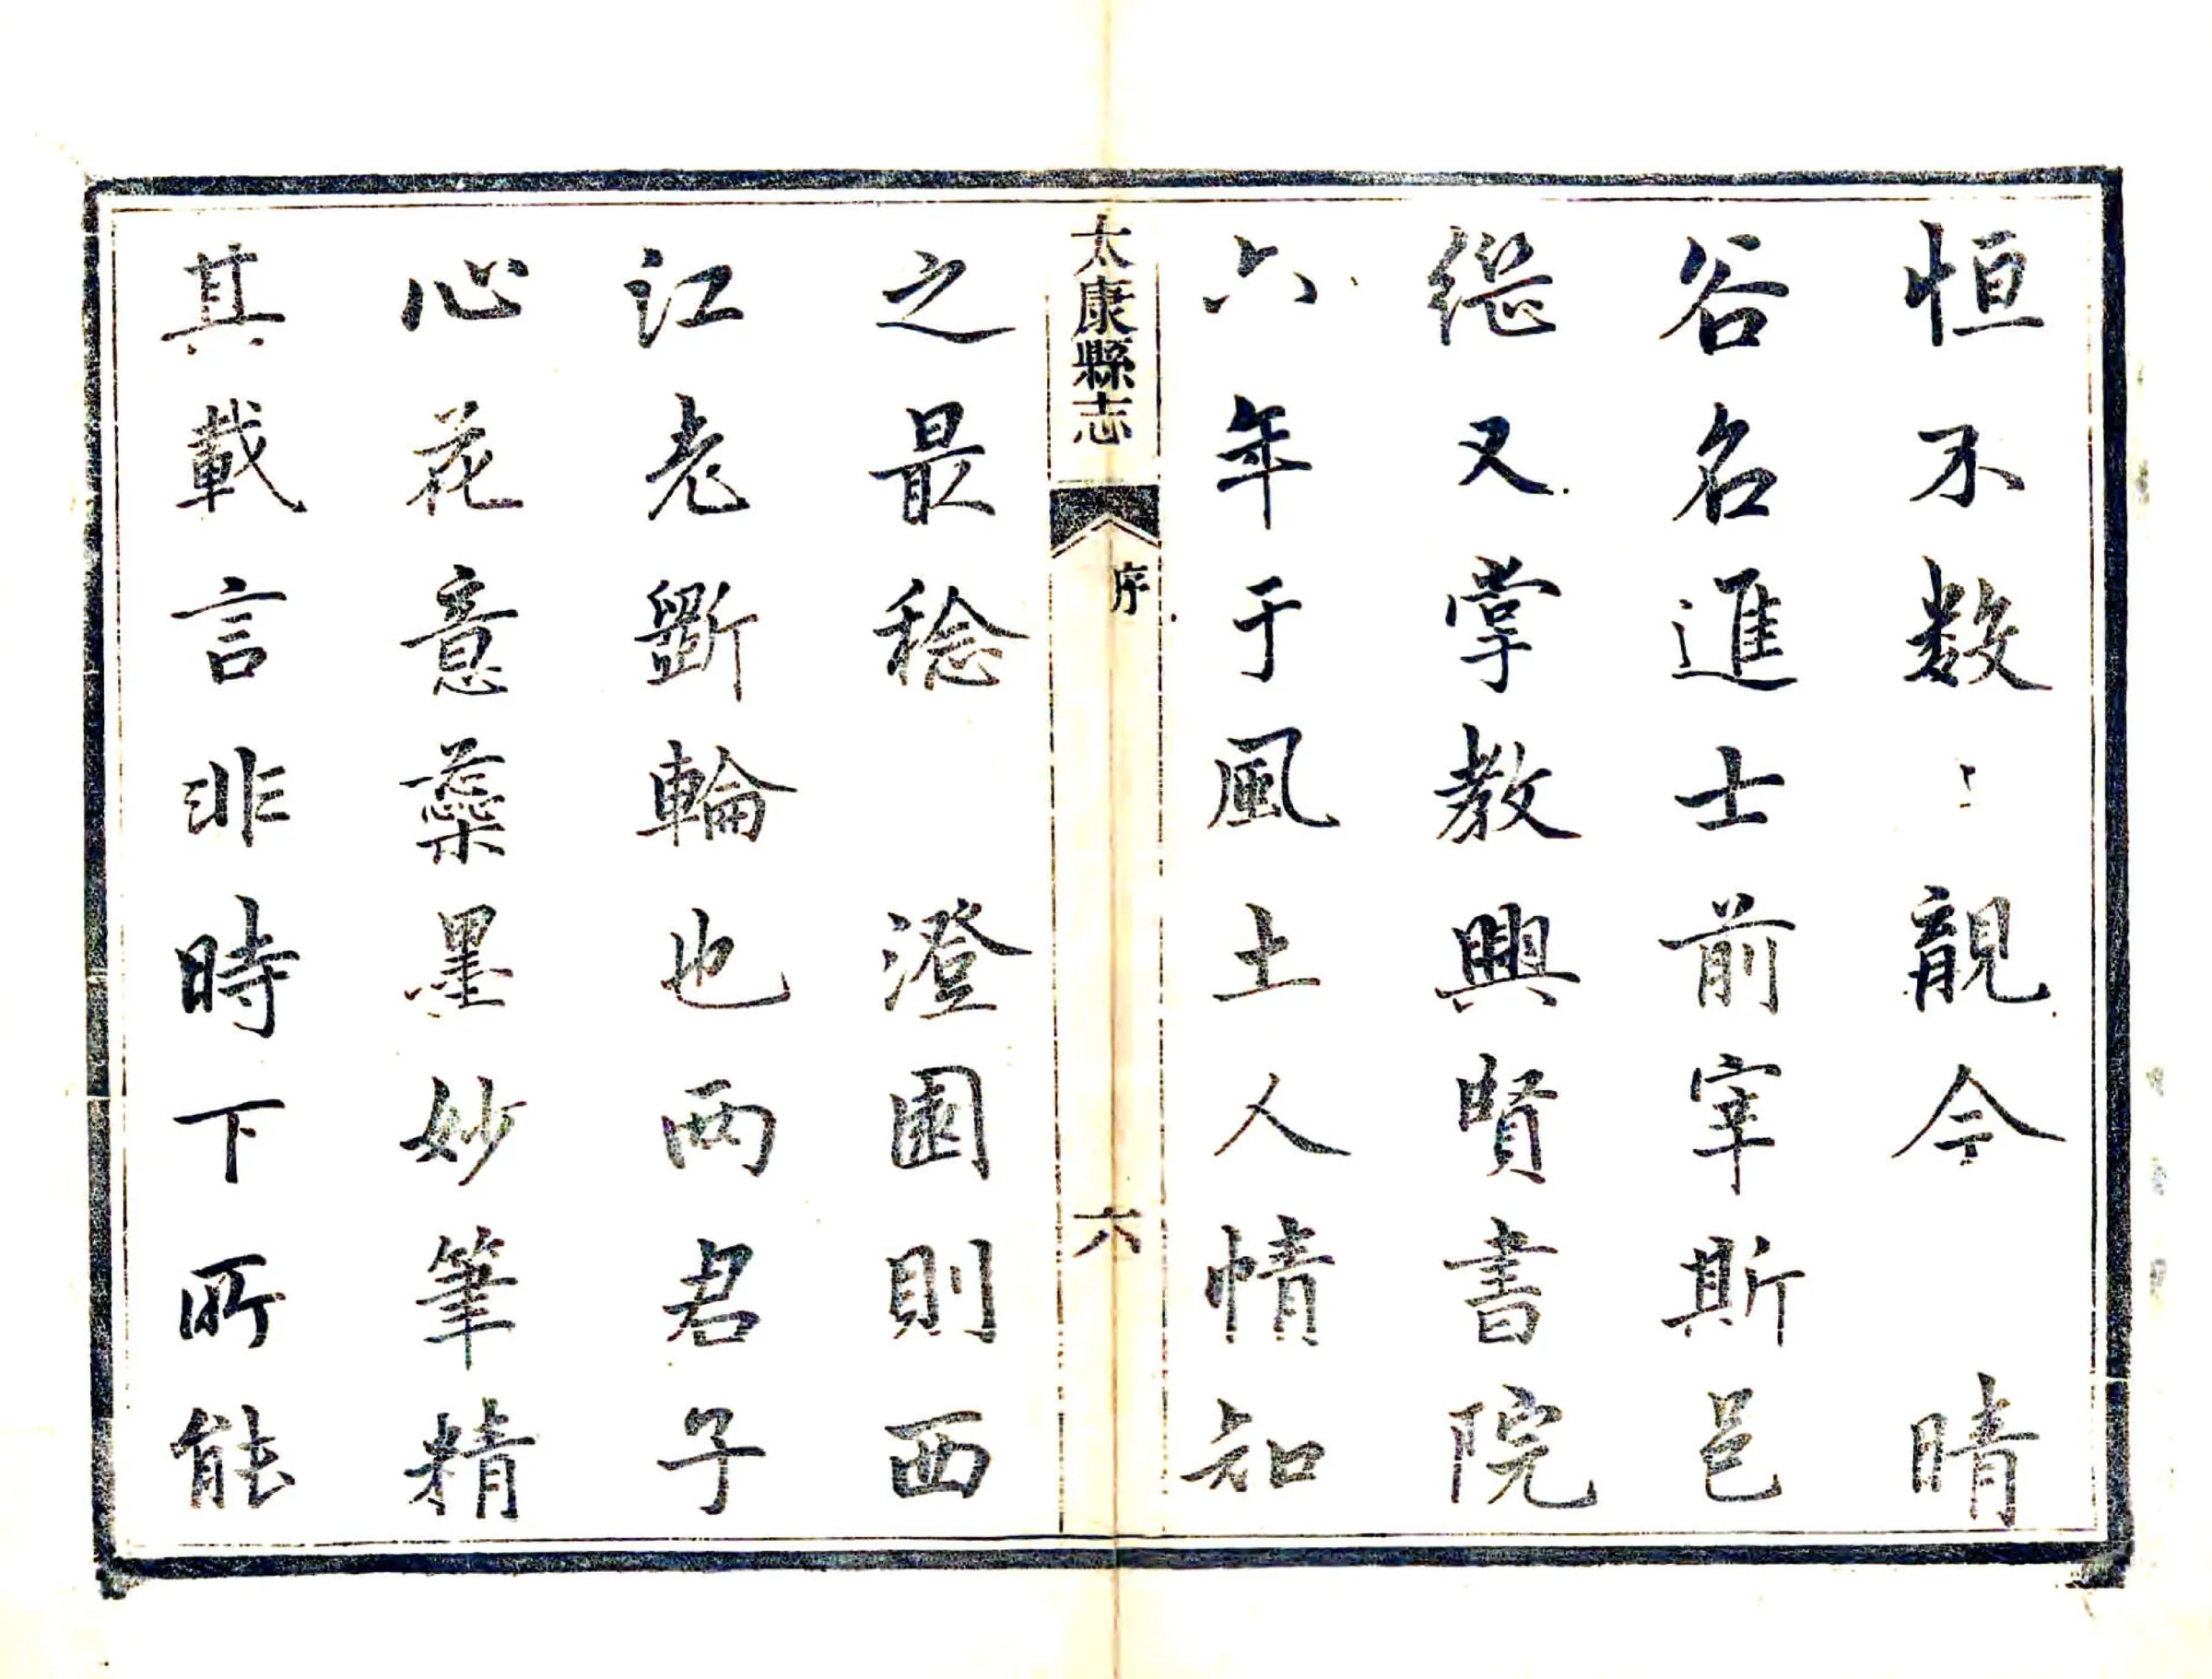 恒不数〻覯今　晴
谷名進士前宰斯邑
継又掌教興賢書院
六年于風土人情知
太康縣志
序
六
之最稔　澄園則西
江老斲輪也兩君子
心花意蘂墨妙筆精
其載言非時下所能